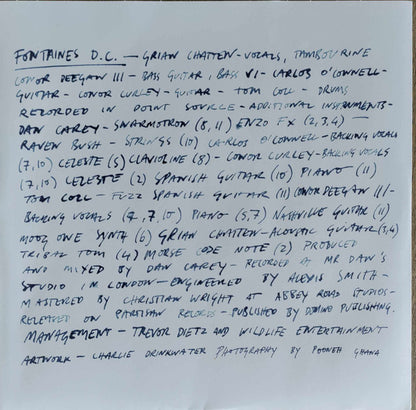 FONTAINES D.C. — GRIAN CHATTEN - VOCALS, TAMBOURINE
CONOR DEEGAN III - BASS GUITAR, BASS VI - CARLOS O'CONNELL -
GUITAR - CONOR CURLEY - GUITAR - TOM COLL - DRUMS
RECORDED IN POINT SOURCE - ADDITIONAL INSTRUMENTS -
DAN CAREY - SWARMOTRON (8, 11) ENZO FX (2,3,4) —
RAVEN BUSH - STRINGS (10) CARLOS O'CONNELL - BACKING VOCALS
(7,10) CELESTE (5) CLAVIOLINE (8) - CONOR CURLEY - BACKING VOCALS
(7,10) CELESTE (2) SPANISH GUITAR (10) PIANO (11)
TOM COLL - FUZZ SPANISH GUITAR (11) CONOR DEEGAN III -
BACKING VOCALS (2,7,10) PIANO (5,7) NASHVILLE GUITAR (11)
MOOG ONE SYNTH (6) GRIAN CHATTEN - ACOUSTIC GUITAR (3,4)
TRIBAL TOM (4) MORSE CODE NOTE (2) PRODUCED
AND MIXED BY DAN CAREY - RECORDED AT MR DAN'S
STUDIO IN LONDON - ENGINEERED BY ALEXIS SMITH -
MASTERED BY CHRISTIAN WRIGHT AT ABBEY ROAD STUDIOS -
RELEASED ON PARTISAN RECORDS - PUBLISHED BY DOMINO PUBLISHING.
MANAGEMENT - TREVOR DIETZ AND WILDLIFE ENTERTAINMENT
ARTWORK - CHARLIE DRINKWATER PHOTOGRAPHY BY POONEH GHANA